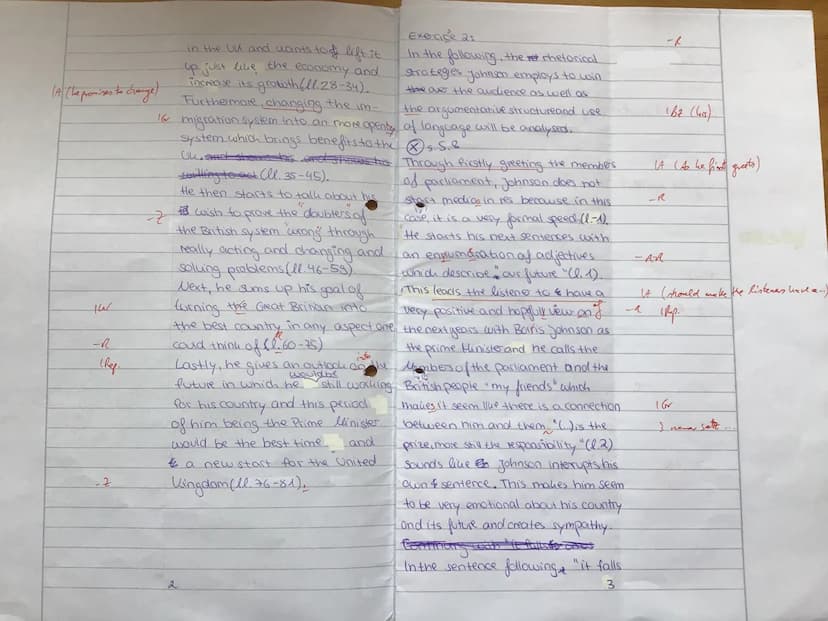 in the UK and wants to lift it
up just like the economy and
increase its growth (ll. 28-34).
IA (he promises to change)
Furthermore, changing the im-
IGr
migration system into an more open
system which brings benefits to the
UK
(ll. 35-45).
He then starts to talk about his
-Z
wish to prove the "doubters" of
the British system "wrong" through
really acting and changing and
solving problems (ll. 46-59)
Next, he sums up his goal of
turning the Great Britian into
the best country in any aspect one
-R
coud think of (l. 60-75)
IRep.
Lastly, he gives an outlook on the
into
would be
future in which he still working
for his country and this period
of him being the Prime Minister
would be the best time and
a new start for the United
-Z
Kingdom (ll. 76-81).
2
Exercise 2:
-R
In the following, the rhetorical
strategies Johnson employs to win
over the audience as well as
the argumentative structure and use
of language will be analysed.
s.S.
Through firstly greeting the members
IA (As he first greets)
of parliament, Johnson does not
start medias in res because in this
-R
case, it is a very formal speed (l.-1).
He starts his next sentences with
an enumeration of adjectives
which describe "our future" (l. 1).
This leads the listene to have a
IA (should make the listeners have a...)
very positive and hopfull view on of
-R IRep.
the next years with Boris Johnson as
the prime Minister and he calls the
Members of the parliament and the
British people "my friends" which
makes it seem like there is a connection
IGr
between him and them. "(...) is the
prize, more still the responsibility" (l. 2)
sounds like Johnson interupts his
own sentence. This makes him seem
to be very emotional about his country
and its future and creates sympathy.
In the sentence following, "it falls
3